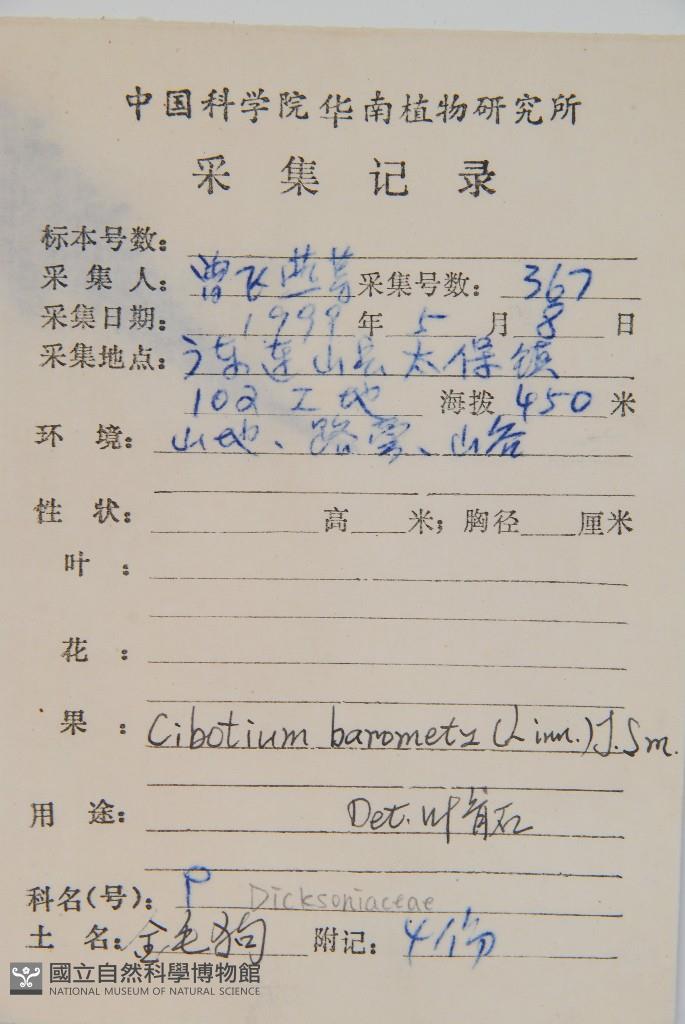 中国科学院华南植物研究所
采集记录
标本号数：
采集人：曾飞燕等 采集号数：367
采集日期：1999年5月8日
采集地点：广东连山县太保镇
102工地 海拨450米
环境：山地、路旁、山谷
性状： 高 米；胸径 厘米
叶：
花：
果：Cibotium barometz (Linn.) J. Sm.
用途： Det. 叶育石
科名(号)：P Dicksoniaceae
土名：金毛狗 附记：4份
國立自然科學博物館
NATIONAL MUSEUM OF NATURAL SCIENCE